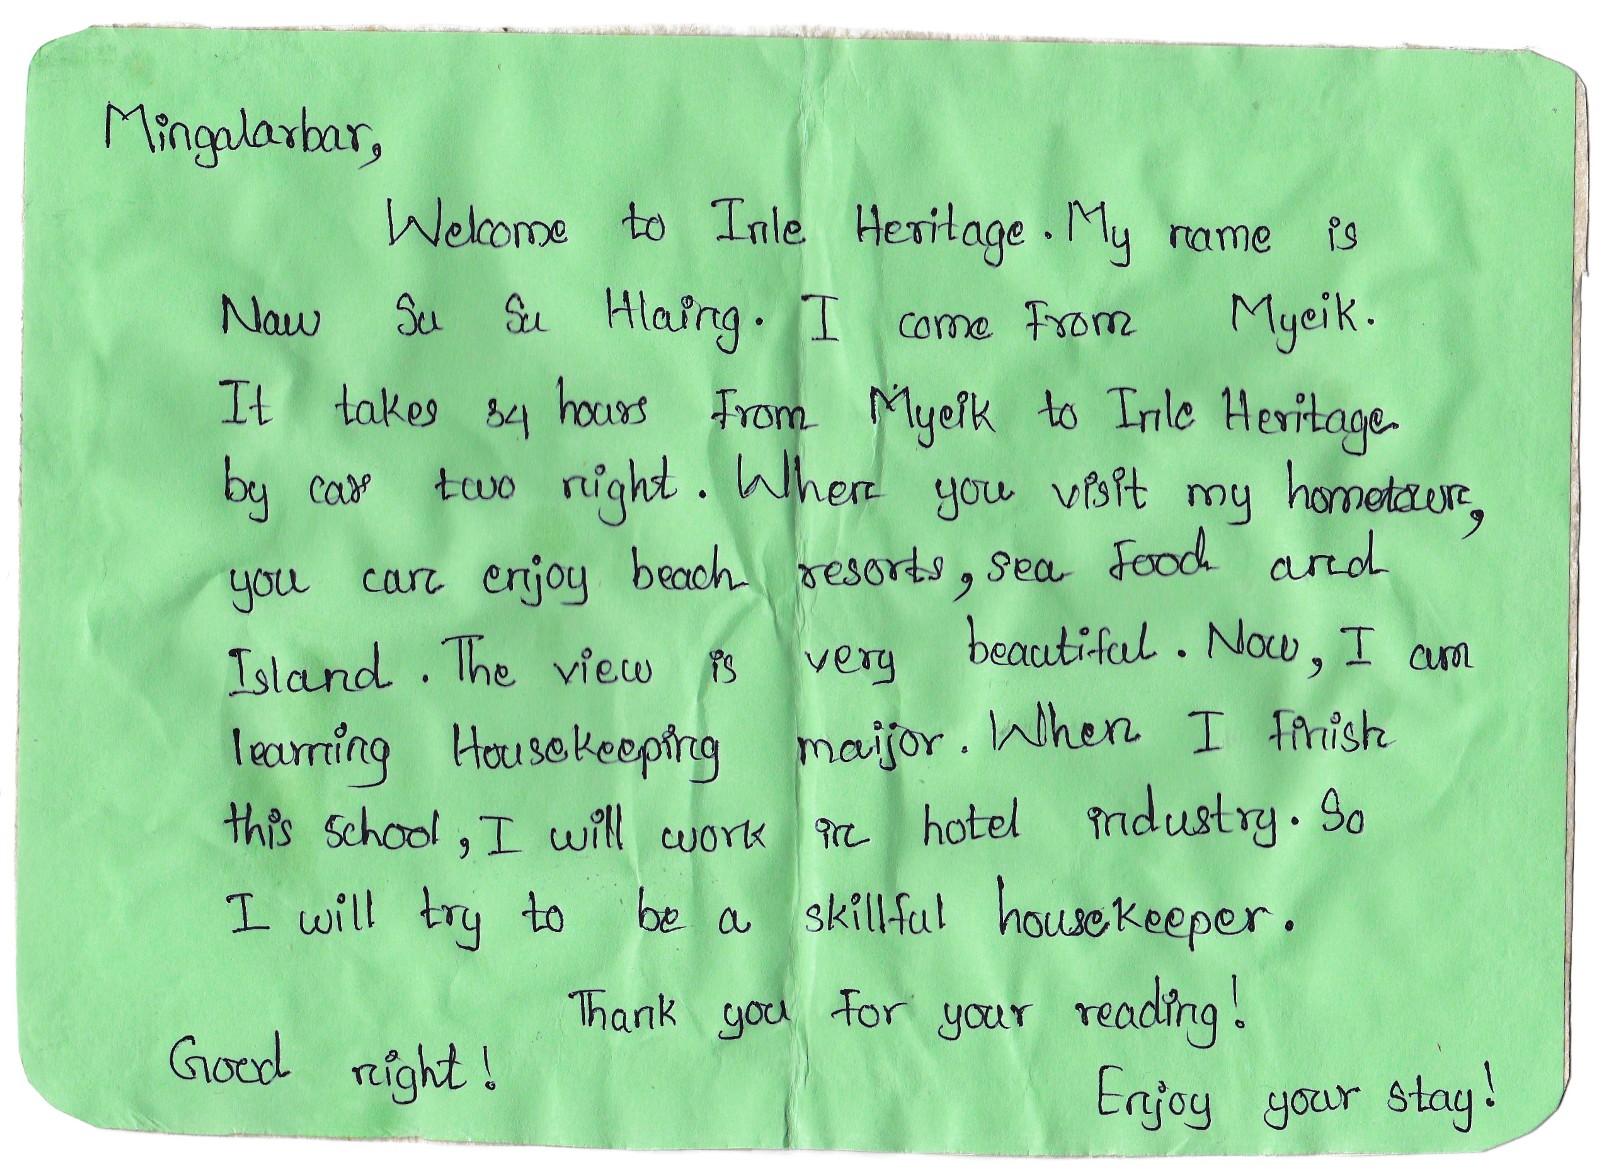 Mingalarbar,
Welcome to Inle Heritage. My name is
Naw Su Su Hlaing. I come from Myeik.
It takes 34 hours from Myeik to Inle Heritage
by car two night. When you visit my hometown,
you can enjoy beach resorts, sea food and
Island. The view is very beautiful. Now, I am
learning Housekeeping maijor. When I finish
this school, I will work in hotel industry. So
I will try to be a skillful housekeeper.
Thank you for your reading!
Good night!
Enjoy your stay!